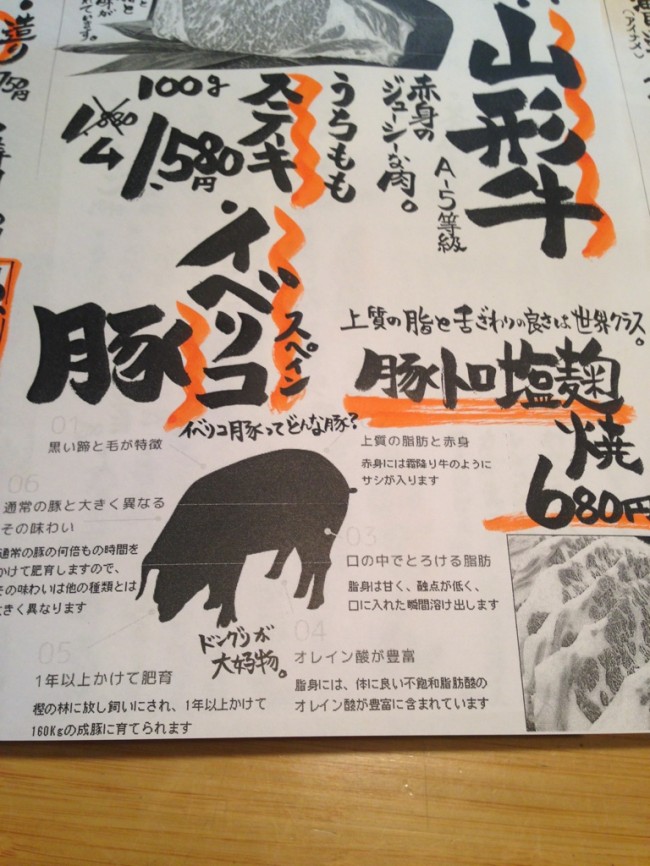 山形牛
A-5等級
赤身の
ジューシーな肉。
うちもも
ステーキ
100g
1,580円
スペイン
イベリコ
豚
上質の脂と舌ざわりの良さは世界クラス。
豚トロ塩麹
焼
680円
イベリコ豚ってどんな豚?
01
黒い蹄と毛が特徴
上質の脂肪と赤身
赤身には霜降り牛のように
サシが入ります
03
口の中でとろける脂肪
脂身は甘く、融点が低く、
口に入れた瞬間溶け出します
04
オレイン酸が豊富
脂身には、体に良い不飽和脂肪酸の
オレイン酸が豊富に含まれています
05
1年以上かけて肥育
樫の林に放し飼いにされ、1年以上かけて
160Kgの成豚に育てられます
06
通常の豚と大きく異なる
その味わい
通常の豚の何倍もの時間を
かけて肥育しますので、
その味わいは他の種類とは
大きく異なります
ドングリが
大好物。